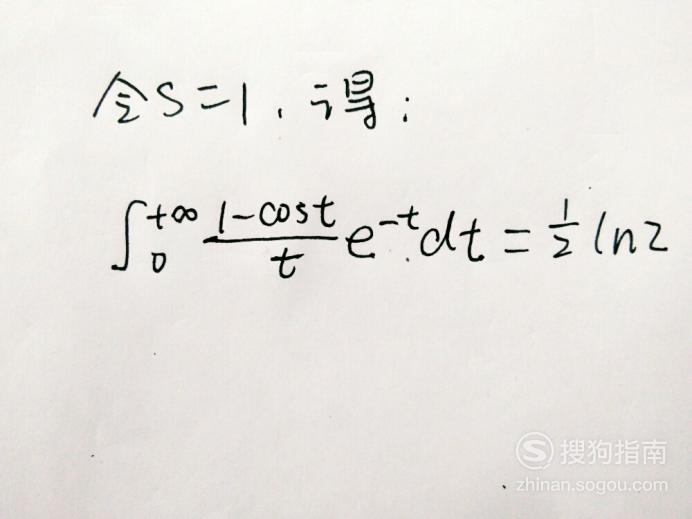 令S=1,得:
∫₀^{+∞} \frac{1-cost}{t} e^{-t}dt = \frac{1}{2} ln2
搜狗指南
zhinan.sogou.com